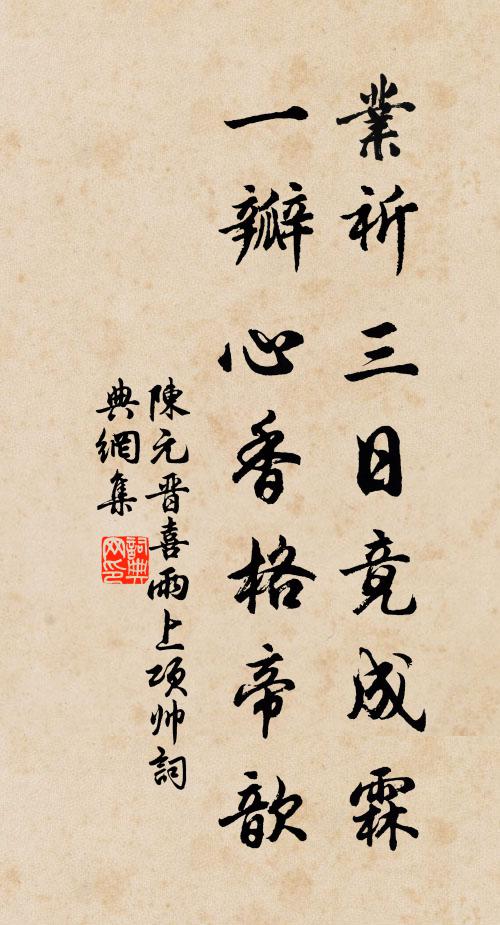 業祈三日竟成霖
一瓣心香格帝歆
陳元晋喜雨上项帅詞
典網集
詞典
网印